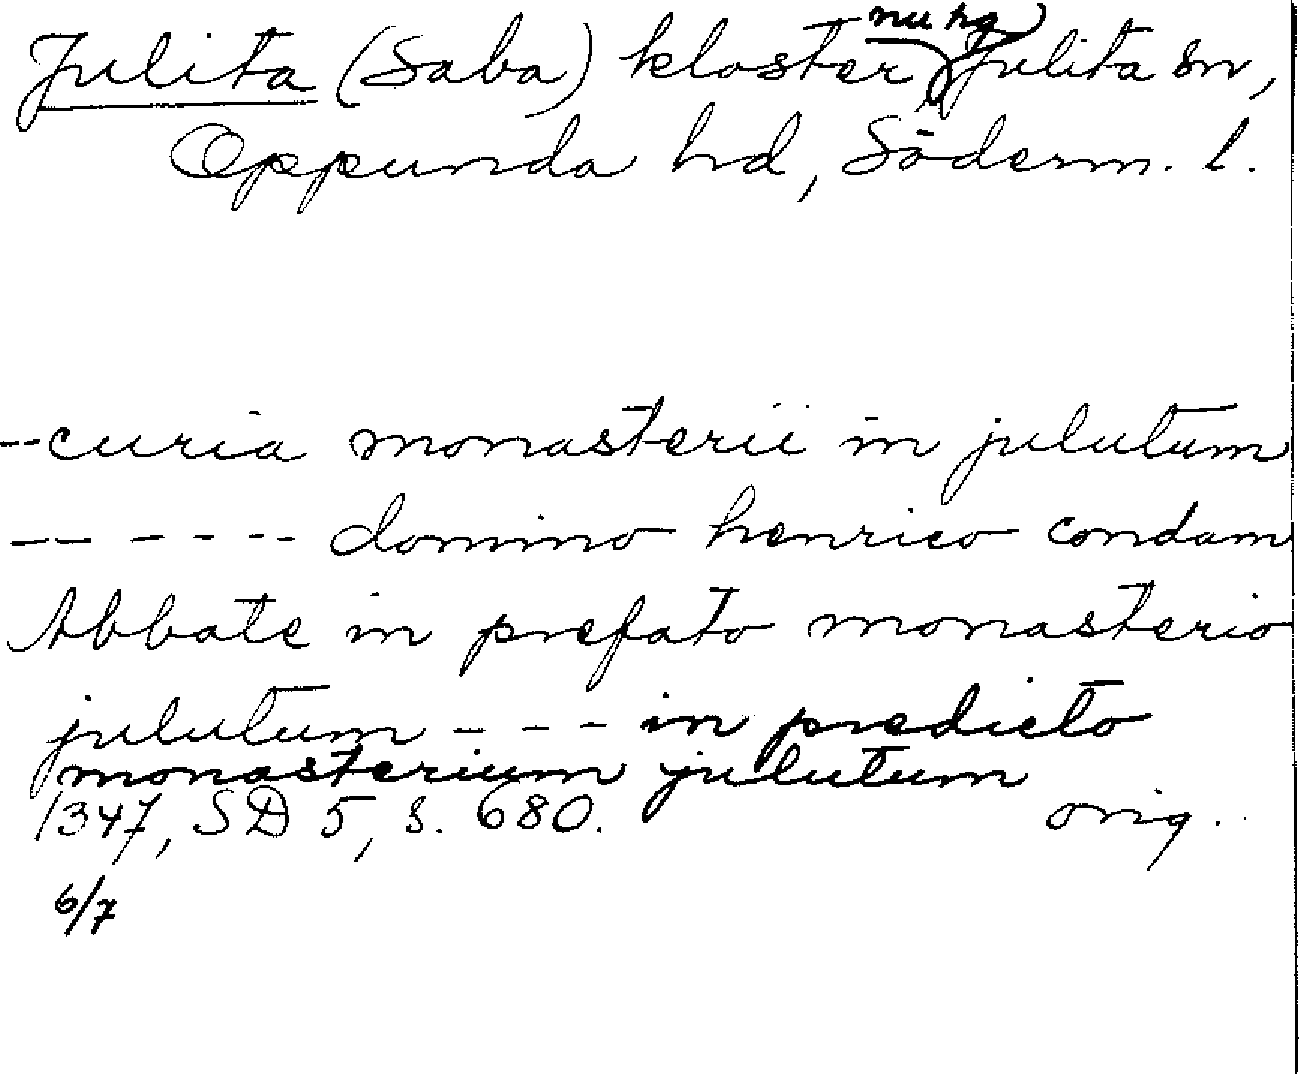 Julita (Saba) kloster, nu hg Julita sn,
Oppunda hd, Söderm. l.
--curia monasterii in julutum
------ domino henrico condam
Abbate in prefato monasterio
julutum --- in predicto
monasterium julutum
1347, SD 5, s. 680. orig.
6/7